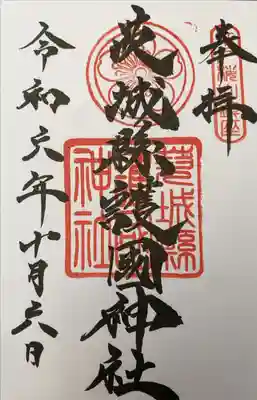 奉拝
茨城縣護國神社
茨城縣護國神社
令和六年十月六日